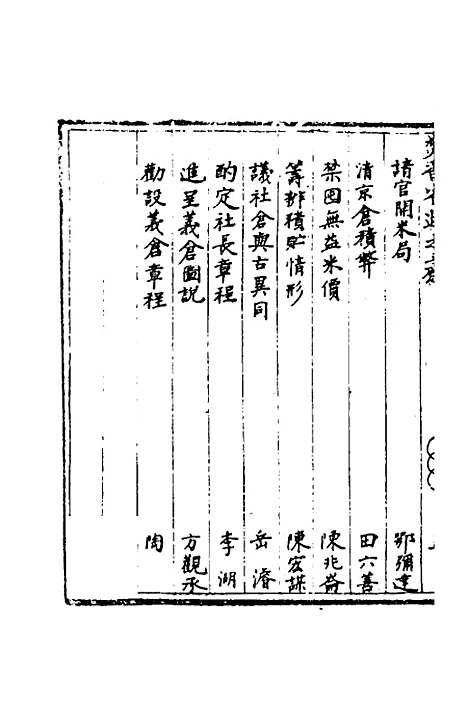 請官開米局　鄂彌達
清京倉積弊　田六善
禁囤無益米價　陳兆崙
籌辦積貯情形　陳宏謀
議社倉與古異同　岳濬
酌定社長章程　李湖
進呈義倉圖說　方觀承
勸設義倉章程　陶